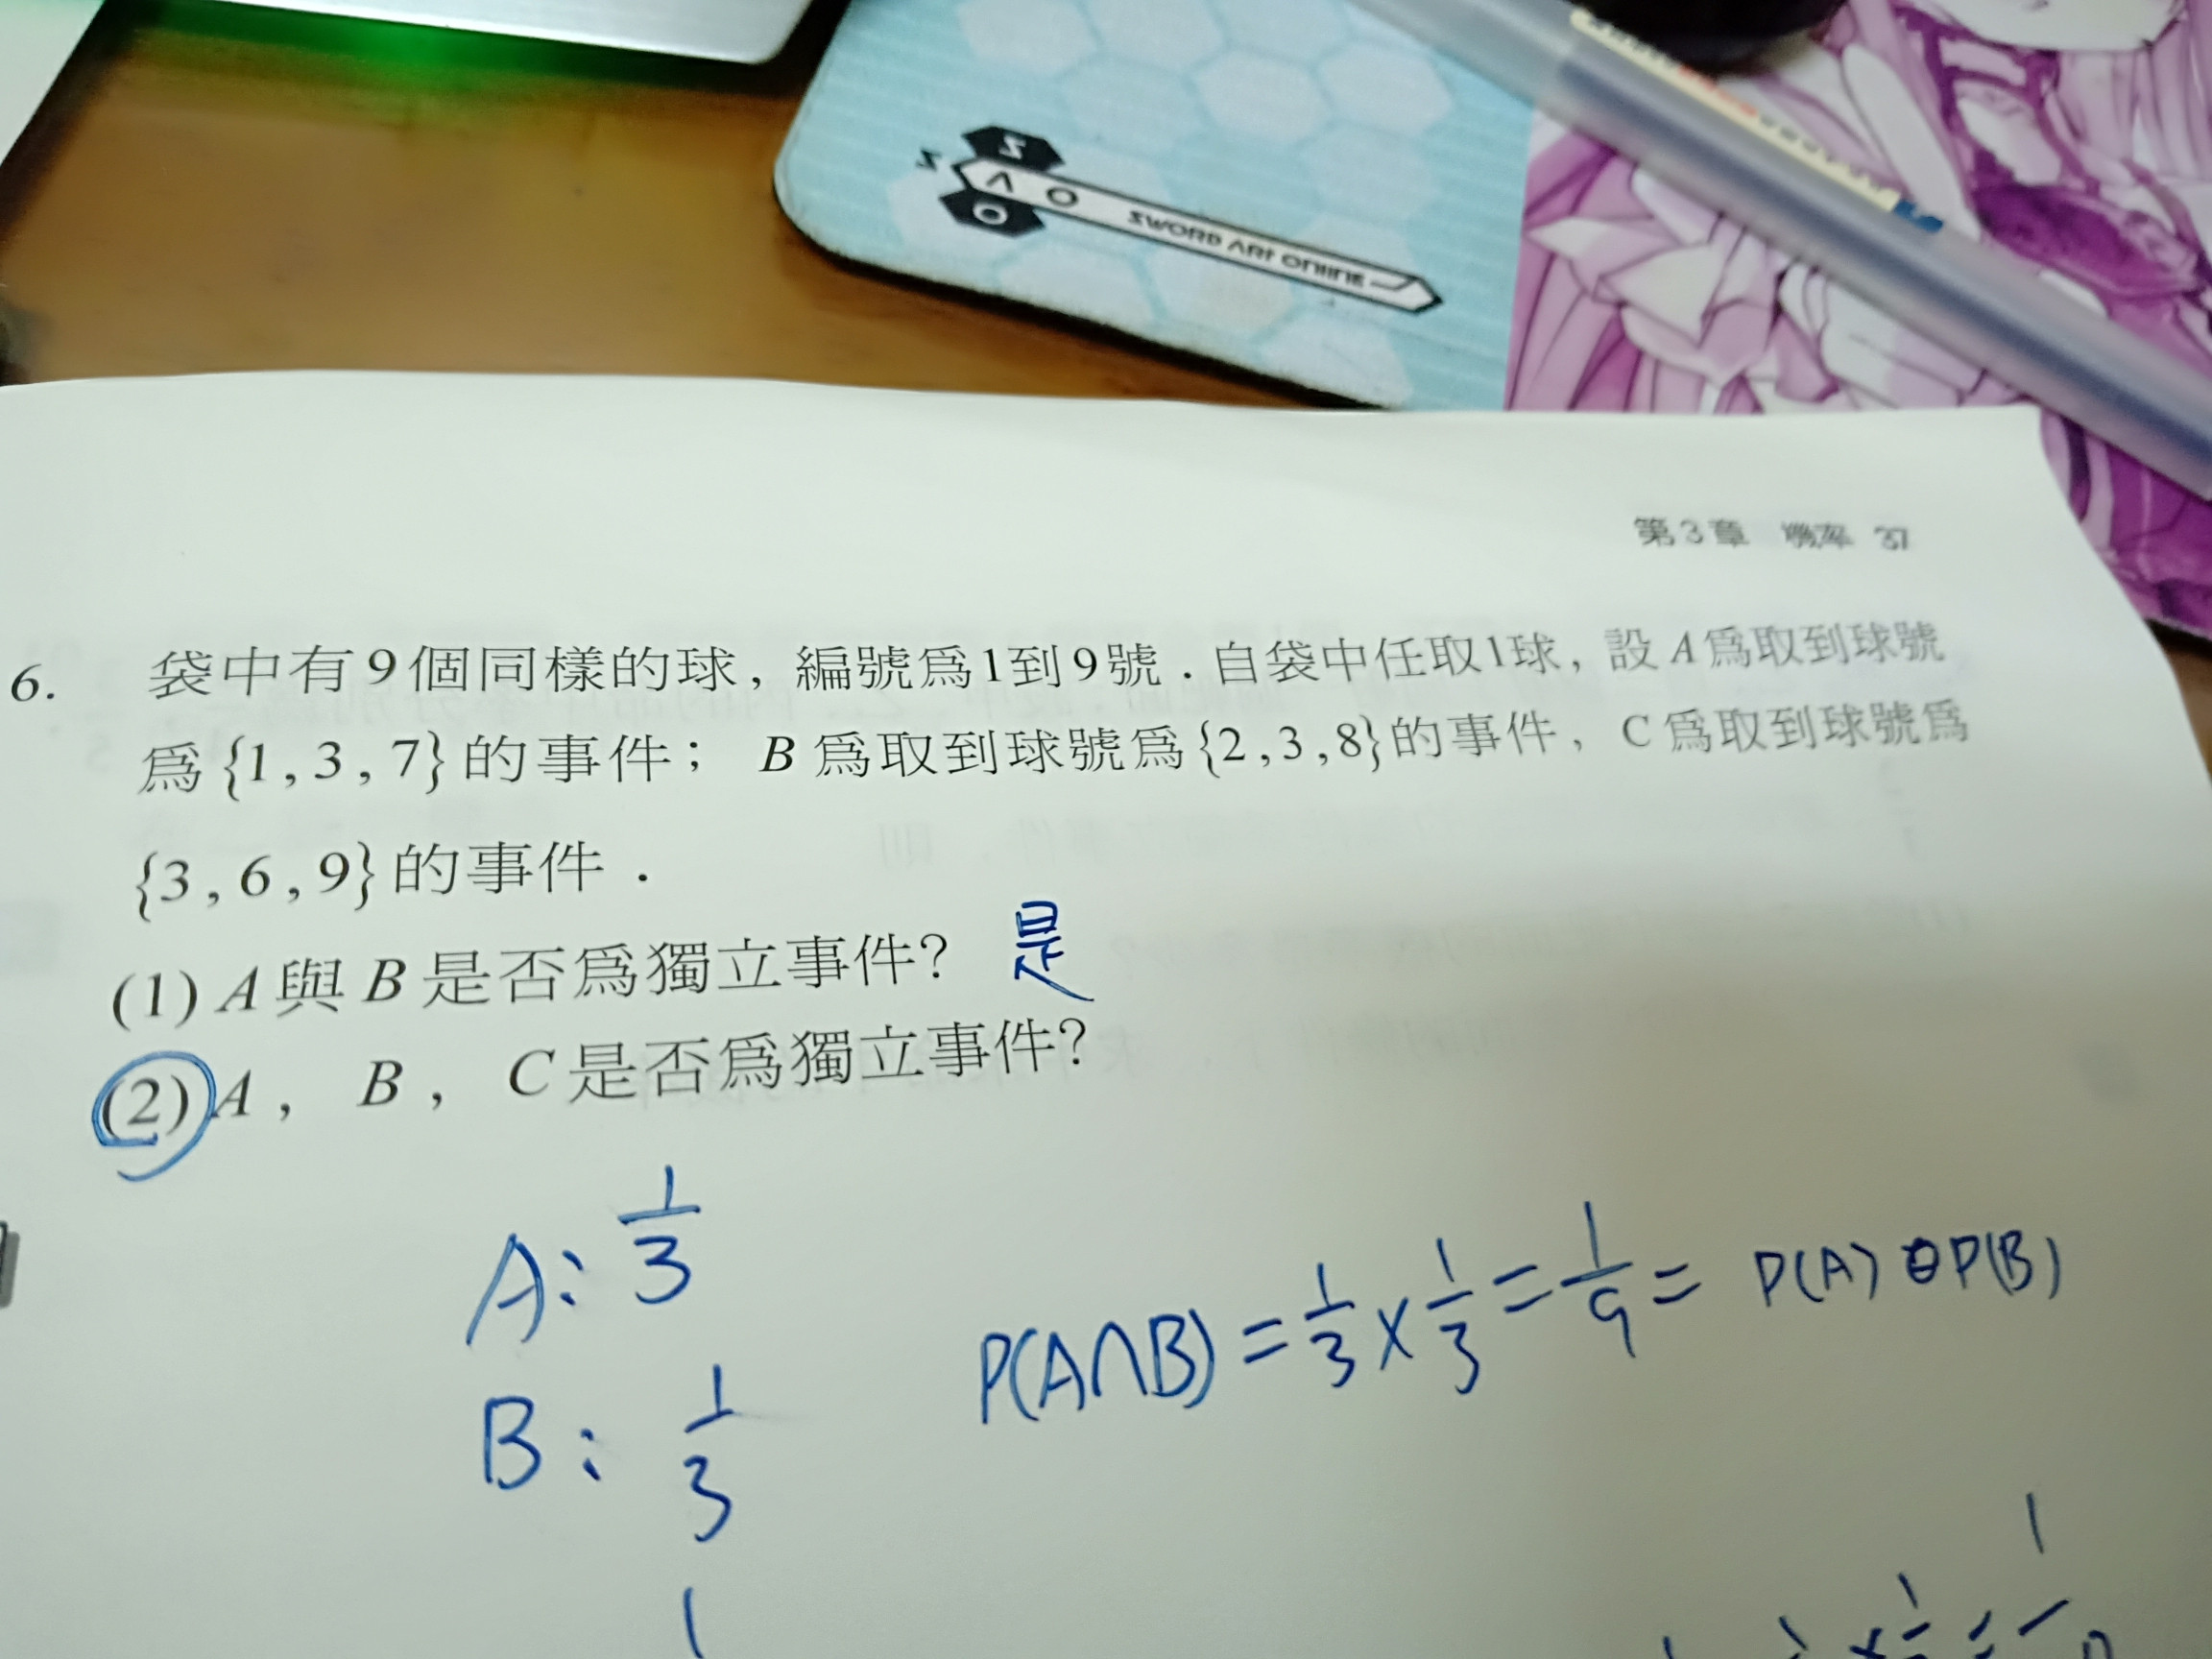 SWORD ART ONLINE
第3章 機率 37
6. 袋中有9個同樣的球，編號爲1到9號．自袋中任取1球，設A爲取到球號
爲{1,3,7}的事件； B爲取到球號爲{2,3,8}的事件，C爲取到球號爲
{3,6,9}的事件．
(1) A與B是否爲獨立事件？ 是
(2) A， B， C是否爲獨立事件？
A: 1/3
P(A∩B) = 1/3 × 1/3 = 1/9 = P(A) P(B)
B: 1/3